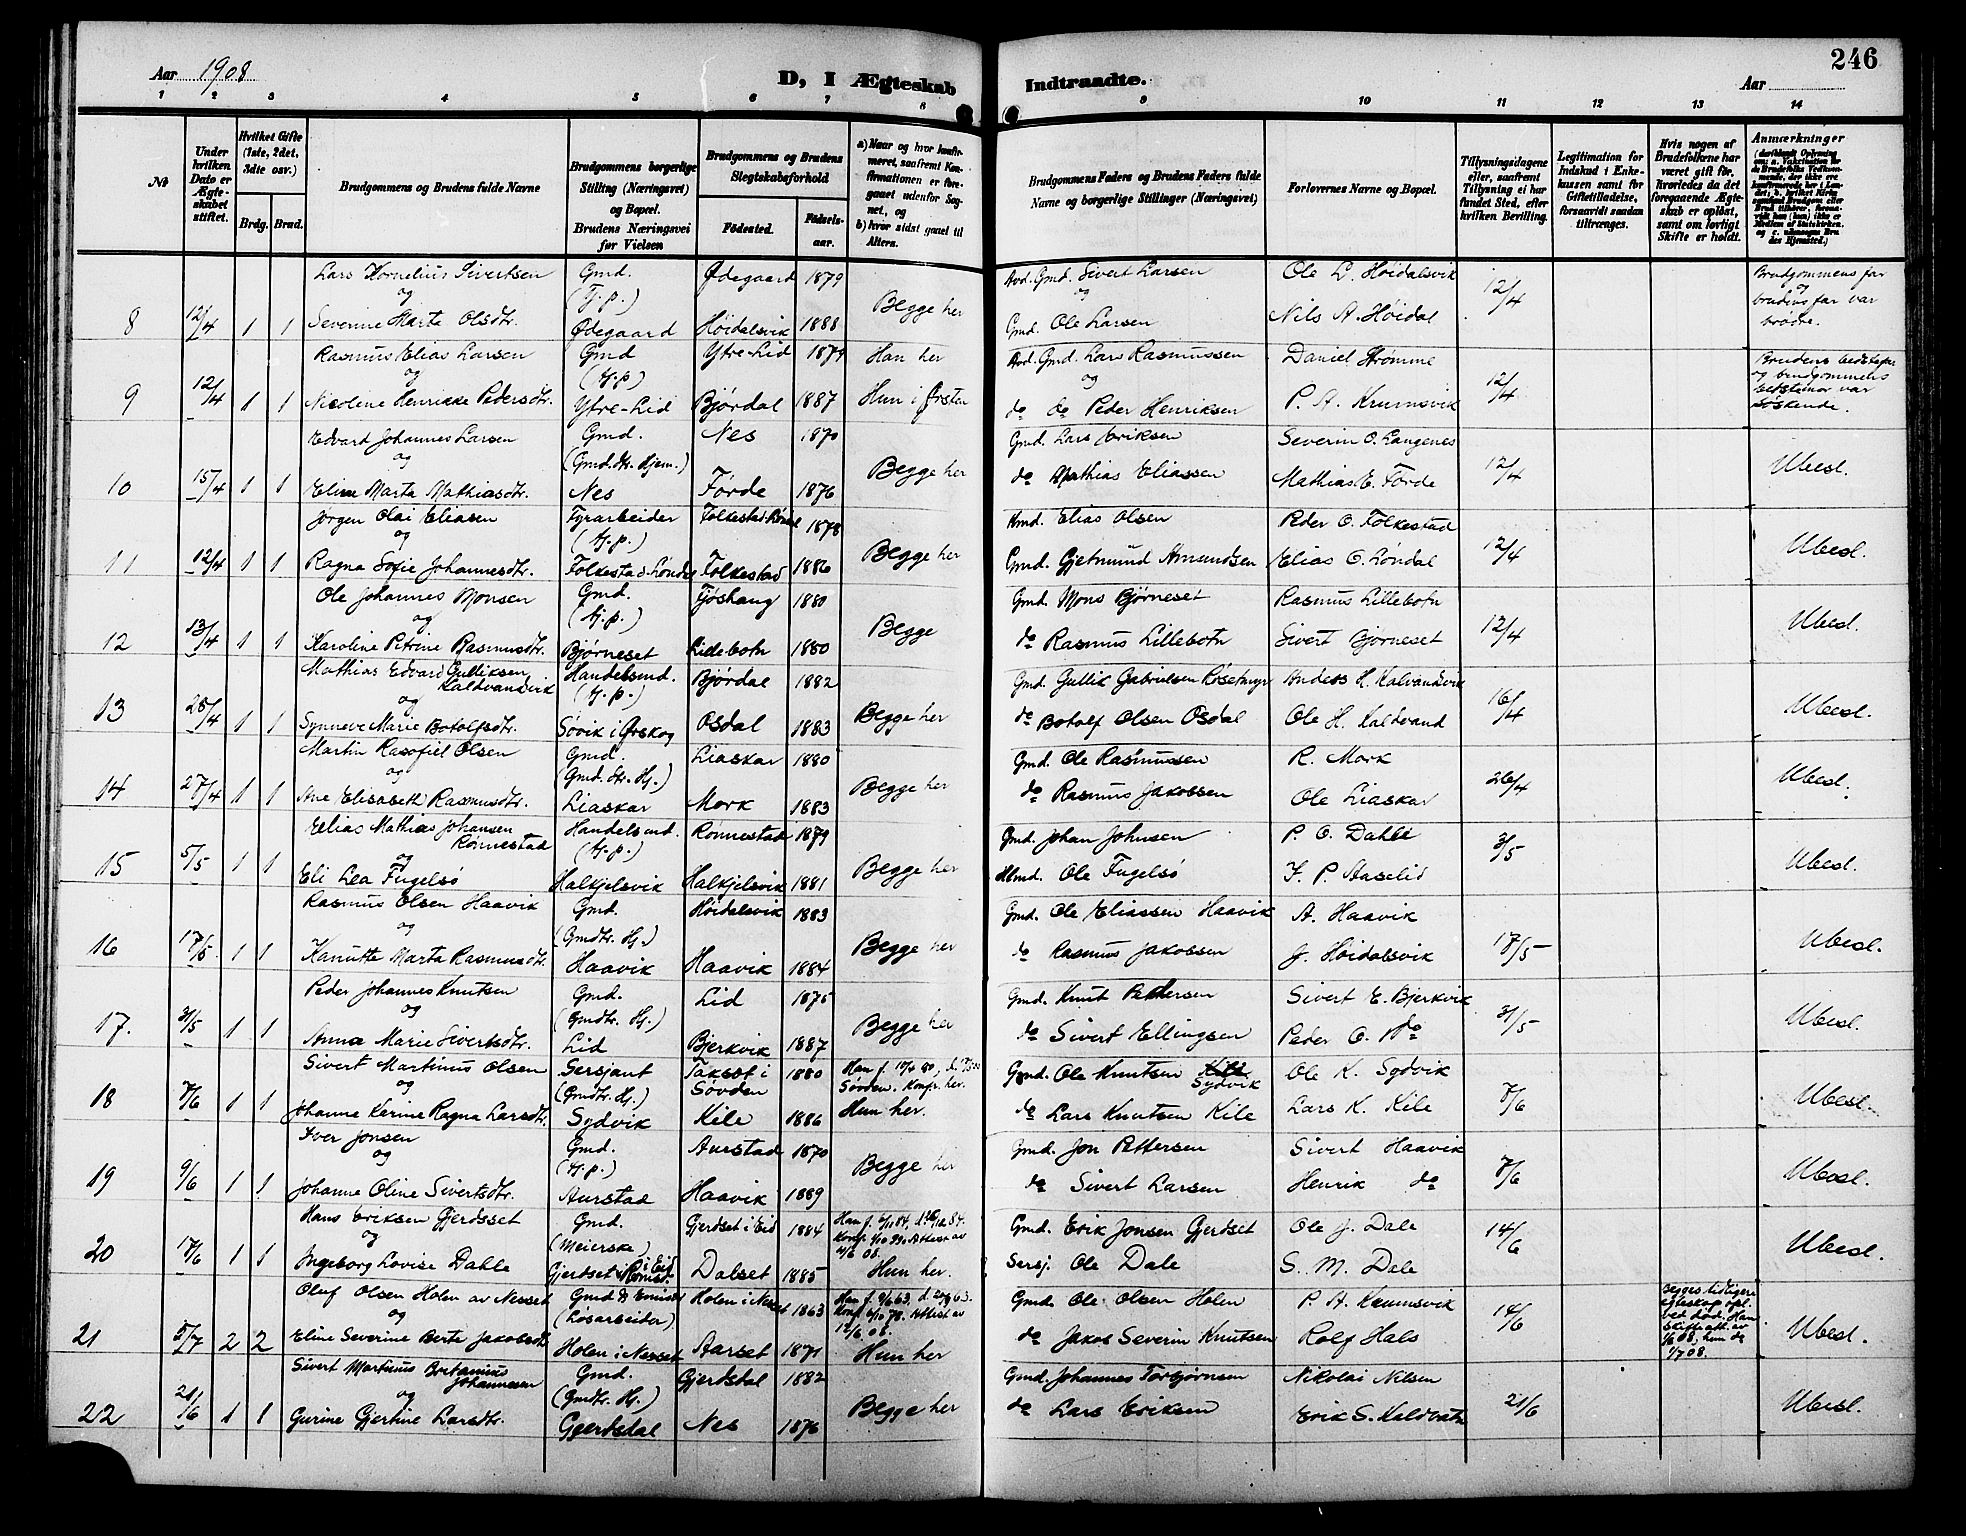 Aar 1908
D, I Ægteskab Indtraadte.
246
Aar
1 2 3 4 5 6 7 8 9 10 11 12 13 14
No
Under hvilken Dato er Ægteskabet stiftet.
Hvilket Gifte (1ste, 2det, 3die osv.)
Brdg. Brud.
Brudgommens og Brudens fulde Navne
Brudgommens borgerlige Stilling (Næringsvei) og Bopæl. Brudens Næringsvei før Vielsen
Brudgommens og Brudens Slegtskabsforhold
Fødested. Fødselsaar.
a) Naar og hvor konfirmeret, saafremt Konfirmationen er foregaaet udenfor Sognet, og b) hvor sidst gaaet til Alters.
Brudgommens Faders og Brudens Faders fulde Navne og borgerlige Stillinger (Næringsvei)
Forlovernes Navne og Bopæl.
Tillysningsdagene eller, saafremt Tillysning ei har fundet Sted, efter hvilken Bevilling.
Legitimation for Indskud i Enkekassen samt for Giftetilladelse, forsaavidt saadan tiltrænges.
Hvis nogen af Brudefolkene har været gift før, hvorledes da det foregaaende Ægteskab er opløst, samt om lovligt Skifte er holdt.
Anmærkninger
8 12/4 1 1 Lars Kornelius Sivertsen og Severine Marta Olsdtr. Gmd. (Hj.p.) Ødegaard Ødegaard 1879 Høidalsvik 1888 Begge her
Gmd. Sivert Larsen og Gmd. Ole Larsen Ole L. Høidalsvik Nils A. Høidal 12/4 Brudgommens far og brudens far var brødre.
9 12/4 1 1 Rasmus Elias Larsen og Nicoline Henrikke Pedersdtr. Gmd (Hj.p) Ytre-Lid Ytre-Lid 1879 Bjørdal 1887 Han her Hun i Ørsten
Gmd. Lars Rasmussen og do do Peder Henriksen Daniel Strømme P. A. Krumsvik 12/4 Brudens bedstefar og brudgommens bedstemor var søskende.
10 15/4 1 1 Edvard Johannes Larsen og Eline Marta Mathiasdtr. Gmd. (Gmd.dtr. hjem.) Nes Nes 1870 Førde 1876 Begge her
Gmd. Lars Eriksen do Mathias Eliassen Severin O. Langenes Mathias E. Førde 12/4 Ubesl.
11 12/4 1 1 Jørgen Olai Eliasen og Ragna Sofie Johannesdtr. Fyrarbeider (Hj.p.) Folkestad-Løndal Folkestad 1878 Folkestad 1886 Begge her
Elias Olsen Gmd. Gjetmund Amundsen Peder O. Folkestad Elias O. Løndal 12/4 Ubesl.
12 13/4 1 1 Ole Johannes Monsen og Karoline Petrine Rasmusdtr. Gmd. (Hj.p.) Bjørneset 1880 Lillebotn 1880 Begge
Gmd. Mons Bjørneset do Rasmus Lillebotn Rasmus Lillebotn Sivert Bjørneset 12/4 Ubesl.
13 1 1 Mathias Edvard Gulliksen Kaldvandsvik og Synneve Marie Botolfsdtr. Handelsmd. (Hj.p.) Søvik i Ørskog Bjørdal 1882 Osdal 1883 Begge her
Gmd. Gullik Gabrielsen Røsetmyr do Botolf Olsen Osdal Anders H. Kalvandsvik Ole H. Kaldvand 16/4 Ubesl.
14 27/4 1 1 Martin Rasofiel Olsen og Ane Elisabeth Rasmusdtr. Gmd. (Gmd.dtr. Hj.) Liaskar Liaskar 1880 Mork 1883 Begge her
Gmd. Ole Rasmussen do Rasmus Jakobsen R. Mork Ole Liaskar 26/4 Ubesl.
15 5/5 1 1 Elias Mathias Johansen Rønnestad og Eli Lea Fugelsø Handelsmd. (Hj.p.) Halkjelsvik Rønnestad 1879 Halkjelsvik 1881 Begge her
Gmd. Johan Johnsen Ole Fugelsø P. O. Dahle K. P. Aaselid 3/5 Ubesl.
16 17/5 1 1 Rasmus Olsen Haavik og Kanutte Marta Rasmusdtr. Gmd. (Gmdtr. Hj.) Haavik Høidalsvik 1883 Haavik 1884 Begge her
Gmd. Ole Eliassen Haavik do Rasmus Jakobsen A. Haavik J. Høidalsvik 17/5 Ubesl.
17. 31/5 1 1 Peder Johannes Knutsen og Anna Marie Sivertsdtr. Gmd. (Gmdtr. Hj.) Lid Lid 1875 Bjerkvik 1887 Begge her
Gmd. Knut Pettersen do Sivert Ellingsen Sivert E. Bjerkvik Peder O. do 31/5 Ubesl.
18 7/6 1 1 Sivert Martinus Olsen og Johanne Karine Ragna Larsdtr. Sersjant (Gmdtr. Hj.) Sydvik i Søvden 1880 Kile 1886 Søvden. Konf. her. Hun her.
Gmd. Ole Knutsen Sydvik do Lars Knutsen Kile Ole K. Sydvik Lars K. Kile 7/6 Ubesl.
19 9/6 1 1 Iver Jonsen og Johanne Oline Sivertsdtr. Gmd. (Hj.p.) Aurstad Aurstad 1870 Haavik 1889 Begge her
Gmd. Jon Pettersen do Sivert Larsen Sivert Haavik Henrik do 7/6 Ubesl.
20 17/6 1 1 Hans Eriksen Gjerdset og Ingeborg Lovise Dahle Gmd. (Meierske) Gjerdset i Eid Gjerdset i Eid 1884 Dalset 1885 Hun her.
Gmd. Erik Jonsen Gjerdset Sersj. Ole Dale Ole J. Dale S. M. Dale 14/6 Ubesl.
21 5/7 2 2 Oluf Olsen Holen av Nesset og Eline Severine Berte Jakobsdtr. Gmd (Løsarbeider) Holen i Nesset Holen i Nesset 1863 Aarset 1871 Attest av 12/6 08. Hun her
Gmd. Ole Olsen Holen do Jakob Severin Knutsen P. A. Krumsvik Rolf Hals 14/6 Begges tidligere egteskap opl. ved død. Ubesl.
22 21/6 1 1 Sivert Martinus Bretanius Johannesen og Gurine Gjertine Larsdtr. Gmd. (Gmdtr. Hj.) Gjerdsdal Gjerdsdal 1882 Nes 1876 Begge her
Gmd. Johannes Torbjørnsen do Lars Eriksen Nikolai Nilsen Erik S. Kaldvatn 21/6 Ubesl.